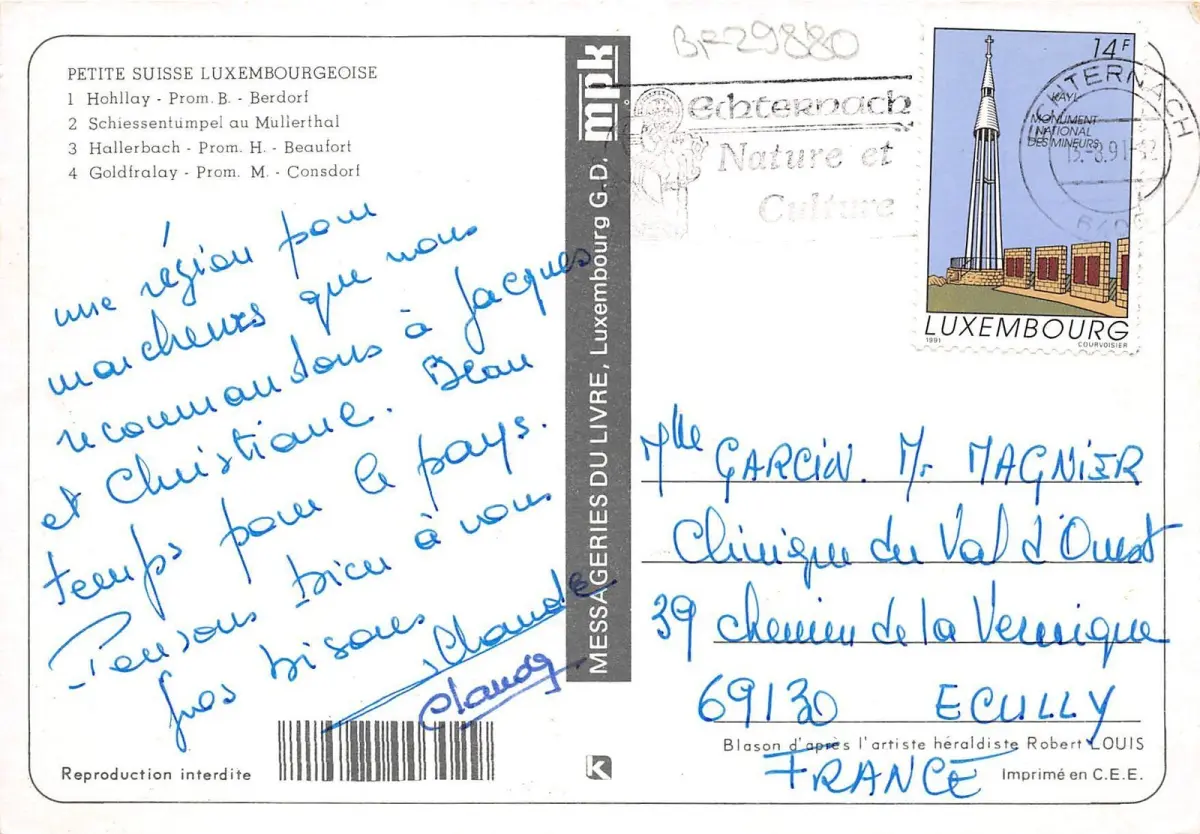 BF29880
PETITE SUISSE LUXEMBOURGEOISE
1 Hohllay - Prom. B. - Berdorf
2 Schiessentümpel au Mullerthal
3 Hallerbach - Prom. H. - Beaufort
4 Goldfralay - Prom. M. - Consdorf
une région pour
marcheurs que nous
recommandons à Jacques
et Christiane. Beau
temps pour le pays.
Pensons bien à vous
gros bisous
Claude
Claudy
Reproduction interdite
mpk
MESSAGERIES DU LIVRE, Luxembourg G.D.
echternach
Nature et
Culture
ECHTERNACH
14F
KAYL
MONUMENT
NATIONAL
DES MINEURS
LUXEMBOURG
1991
COURVOISIER
Mlle GARCIN. Mr MAGNIER
Clinique du Val d'Ouest
39 chemin de la Vernique
69130 ECULLY
Blason d'après l'artiste héraldiste Robert LOUIS
FRANCE
Imprimé en C.E.E.
K